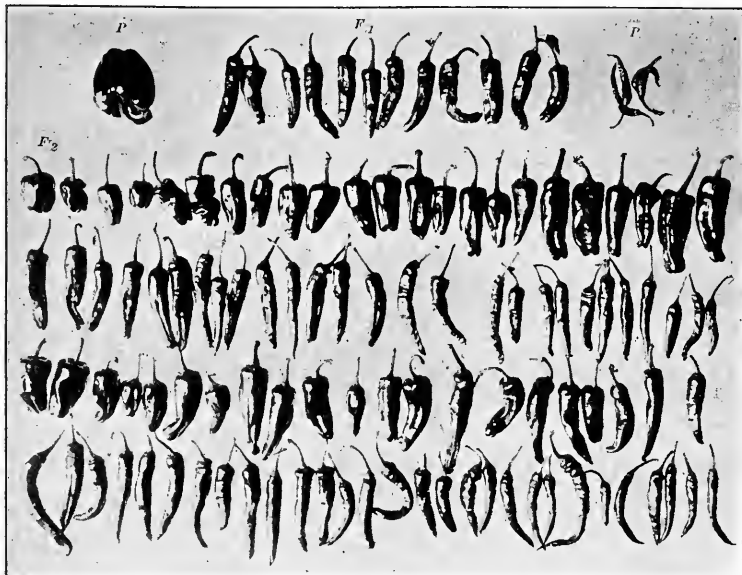 P F1 P
F2